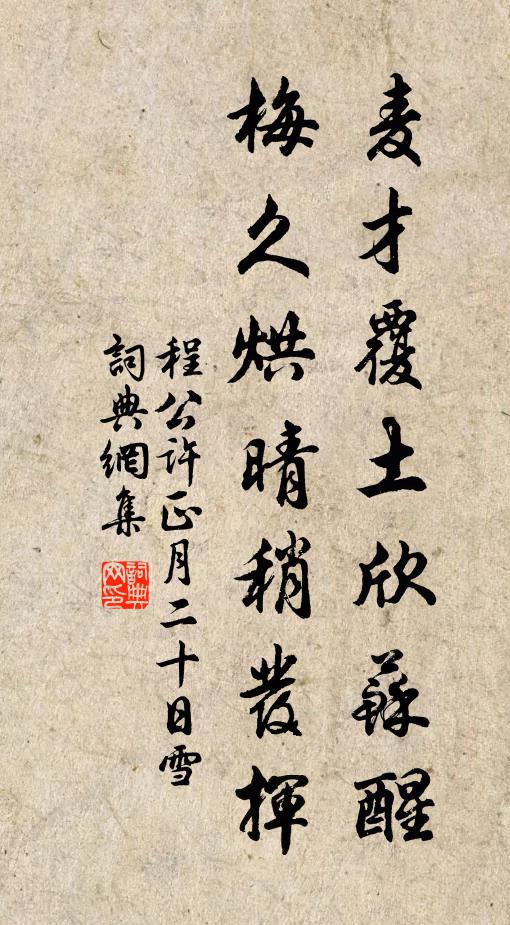 麦才覆土欣蘇醒
梅久烘晴稍發揮
程公許正月二十日雪
詞典網集
詞典
网印